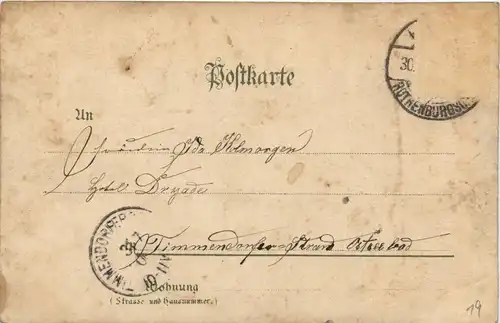 Postkarte
30.
ROTHENBURGSO
An
Fräulein Ida Kolmorgen
Hotel Dryade
Timmendorfer-Strand Ostseebad
TIMMENDORFER
Wohnung
(Strasse und Hausnummer)
19